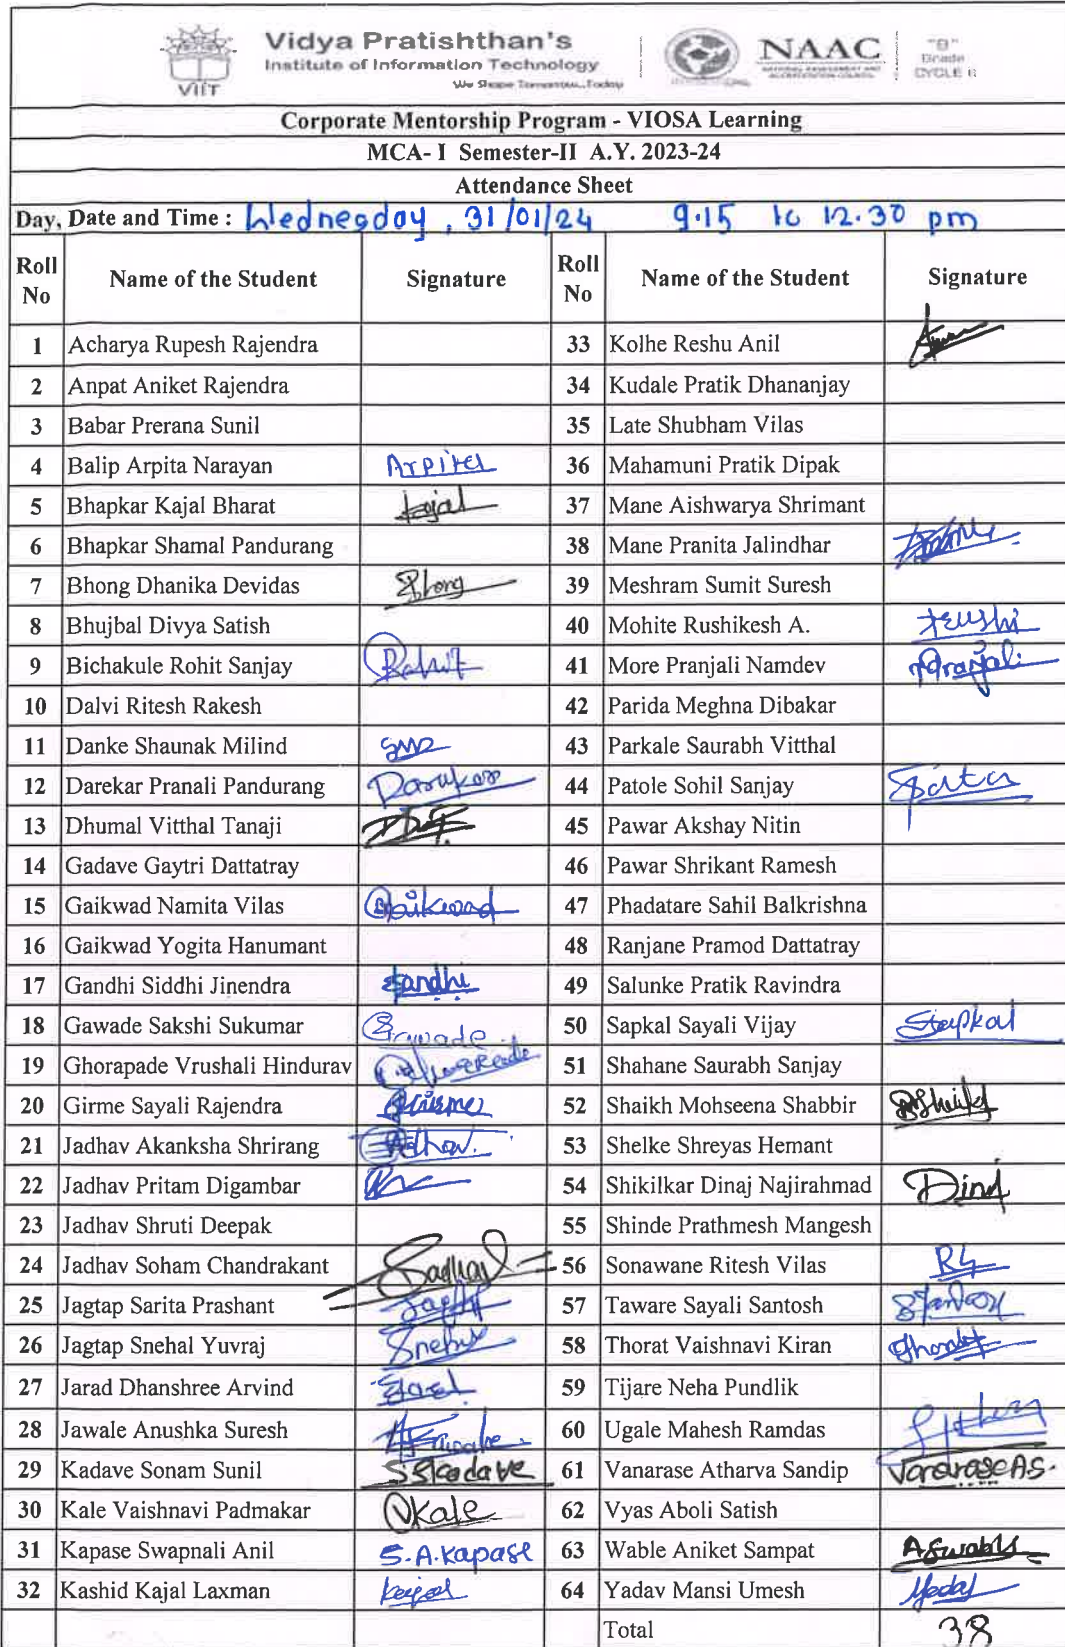 Vidya Pratishthan's
Institute of Information Technology
We Shape Tomorrow...Today
VIIT
NAAC
NATIONAL ASSESSMENT AND ACCREDITATION COUNCIL
"B"
Grade
Corporate Mentorship Program - VIOSA Learning
MCA- I Semester-II A.Y. 2023-24
Attendance Sheet
Day, Date and Time : Wednesday , 31/01/24 9.15 to 12.30 pm
Roll No Name of the Student Signature Roll No Name of the Student Signature
1 Acharya Rupesh Rajendra 33 Kolhe Reshu Anil
2 Anpat Aniket Rajendra 34 Kudale Pratik Dhananjay
3 Babar Prerana Sunil 35 Late Shubham Vilas
4 Balip Arpita Narayan Arpita 36 Mahamuni Pratik Dipak
5 Bhapkar Kajal Bharat Kajal 37 Mane Aishwarya Shrimant
6 Bhapkar Shamal Pandurang 38 Mane Pranita Jalindhar
7 Bhong Dhanika Devidas Bhong 39 Meshram Sumit Suresh
8 Bhujbal Divya Satish 40 Mohite Rushikesh A. Rushi
9 Bichakule Rohit Sanjay Rohit 41 More Pranjali Namdev Pranjali
10 Dalvi Ritesh Rakesh 42 Parida Meghna Dibakar
11 Danke Shaunak Milind 43 Parkale Saurabh Vitthal
12 Darekar Pranali Pandurang Darekar 44 Patole Sohil Sanjay
13 Dhumal Vitthal Tanaji 45 Pawar Akshay Nitin
14 Gadave Gaytri Dattatray 46 Pawar Shrikant Ramesh
15 Gaikwad Namita Vilas Gaikwad 47 Phadatare Sahil Balkrishna
16 Gaikwad Yogita Hanumant 48 Ranjane Pramod Dattatray
17 Gandhi Siddhi Jinendra Gandhi 49 Salunke Pratik Ravindra
18 Gawade Sakshi Sukumar Gawade 50 Sapkal Sayali Vijay Sapkal
19 Ghorapade Vrushali Hindurav 51 Shahane Saurabh Sanjay
20 Girme Sayali Rajendra Girme 52 Shaikh Mohseena Shabbir Shaikh
21 Jadhav Akanksha Shrirang 53 Shelke Shreyas Hemant
22 Jadhav Pritam Digambar 54 Shikilkar Dinaj Najirahmad Dinaj
23 Jadhav Shruti Deepak 55 Shinde Prathmesh Mangesh
24 Jadhav Soham Chandrakant 56 Sonawane Ritesh Vilas
25 Jagtap Sarita Prashant 57 Taware Sayali Santosh
26 Jagtap Snehal Yuvraj Snehal 58 Thorat Vaishnavi Kiran Thorat
27 Jarad Dhanshree Arvind 59 Tijare Neha Pundlik
28 Jawale Anushka Suresh 60 Ugale Mahesh Ramdas
29 Kadave Sonam Sunil S.S.Kadave 61 Vanarase Atharva Sandip Vanarase A.S.
30 Kale Vaishnavi Padmakar VKale 62 Vyas Aboli Satish
31 Kapase Swapnali Anil S.A.Kapase 63 Wable Aniket Sampat
32 Kashid Kajal Laxman Kajal 64 Yadav Mansi Umesh Yadav
Total 38